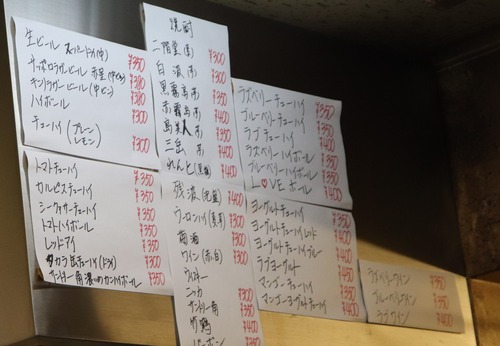 生ビール スーパードライ(中) ¥350
サッポロラガービール 赤星(中ビン) ¥380
キリンラガービール(中ビン) ¥380
ハイボール ¥300
チューハイ (プレーン レモン) ¥300
焼酎
二階堂(麦) ¥300
白波(芋) ¥300
黒霧島(芋) ¥350
赤霧島(芋) ¥400
島美人(芋) ¥400
三岳(芋) ¥400
れんと(黒糖) ¥400
ラズベリーチューハイ ¥350
ブルーベリーチューハイ ¥350
ラブチューハイ ¥400
ラズベリーハイボール ¥350
ブルーベリーハイボール ¥350
L♡VEボール ¥400
トマトチューハイ ¥350
カルピスチューハイ ¥350
シークヮサーチューハイ ¥350
トマトハイボール ¥350
レッドアイ ¥350
タカラ缶チューハイ(ドライ) ¥300
サントリー角 濃いめカンハイボール ¥350
残波(泡盛) ¥400
ウーロンハイ ¥350
梅酒
ワイン(赤白) ¥300
ウイスキー
ニッカ ¥300
サントリー角 ¥350
竹鶴 ¥400
バーボン
ヨーグルトチューハイ ¥350
ヨーグルトチューハイレッド ¥400
ヨーグルトチューハイブルー ¥400
ラブヨーグルト ¥400
マンゴーチューハイ ¥350
マンゴーヨーグルトチューハイ ¥400
ラズベリーワイン ¥350
ブルーベリーワイン ¥350
ラブワイン ¥400